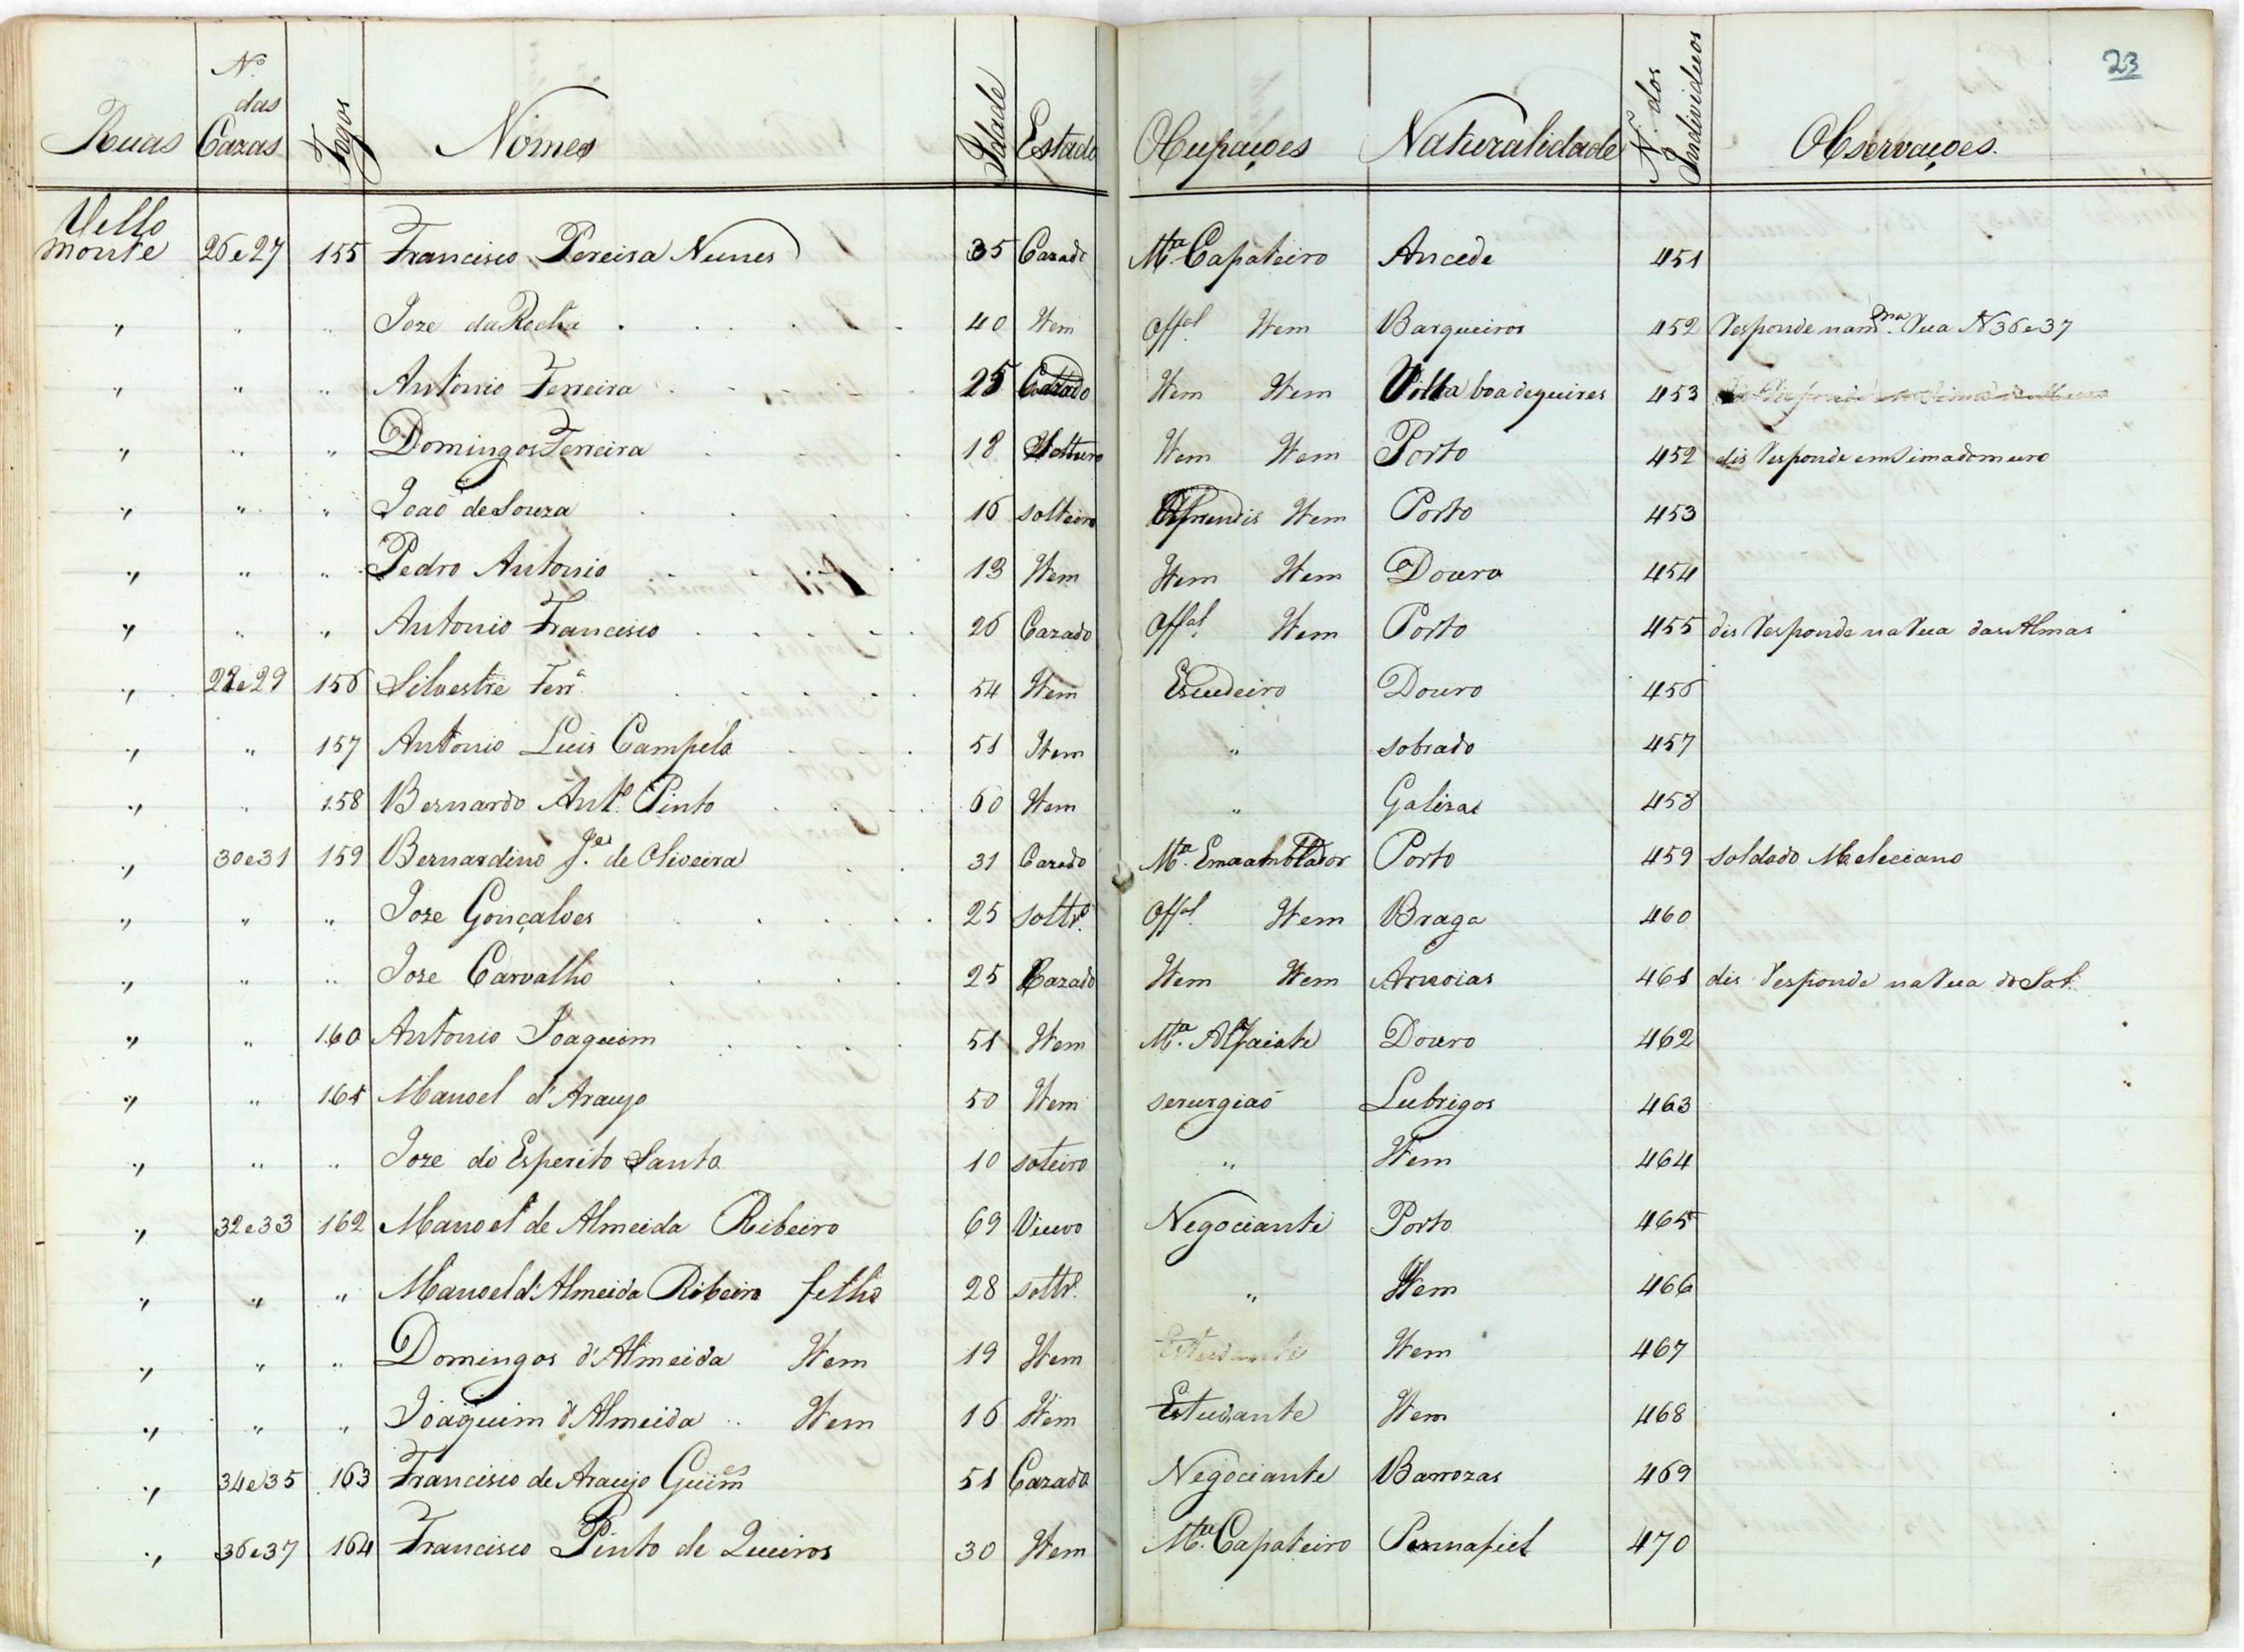 23
Ruas Nº das Cazas Fogos Nomes Idade Estado Ocupaçoes Naturalidade N. dos Individuos Observaçoes.
Bello
monte 26 e 27 155 Francisco Pereira Nunes 35 Cazado Mta Capateiro Ancede 451
" " " Joze da Rocha 40 Item Offal Item Barqueiros 452 Responde na mma Rua N 36 e 37
" " " Antonio Ferreira 25 Cazado Item Item Villa boa de quires 453
" " " Domingos Ferreira 18 Solteiro Item Item Porto 452 dis Responde em Simadomuro
" " " Joaõ de Souza 16 solteiro Aprendis Item Porto 453
" " " Pedro Antonio 13 Item Item Item Douro 454
" " " Antonio Francisco 26 Cazado Offal Item Porto 455 dis Responde na Rua das Almas
" 28 e 29 156 Silvestre Ferra 54 Item Escudeiro Douro 456
" " 157 Antonio Luis Campelo 51 Item " sobrado 457
" " 158 Bernardo Anto Pinto 60 Item " Galiza 458
" 30 e 31 159 Bernardino Je de Oliveira 31 Cazado Mta Emsamblador Porto 459 soldado Meleciano
" " " Joze Gonçalves 25 soltro Offal Item Braga 460
" " " Joze Carvalho 25 Cazado Item Item Arnoias 461 dis Responde na Rua do Sol
" " 160 Antonio Joaquim 51 Item Mta Alfaiate Douro 462
" " 161 Manoel d'Araujo 50 Item serurgiaõ Lubrigos 463
" " " Joze do Esperito Santo 10 soteiro " Item 464
" 32 e 33 162 Manoel de Almeida Ribeiro 69 Viuvo Negociante Porto 465
" " " Manoel d'Almeida Ribeiro filho 28 soltro " Item 466
" " " Domingos d'Almeida Item 19 Item Estudante Item 467
" " " Joaquim d'Almeida Item 16 Item Estudante Item 468
" 34 e 35 163 Francisco de Araujo Guimes 51 Cazado Negociante Barrozas 469
" 36 e 37 164 Francisco Pinto de Queiros 30 Item Mta Capateiro Pennafiel 470